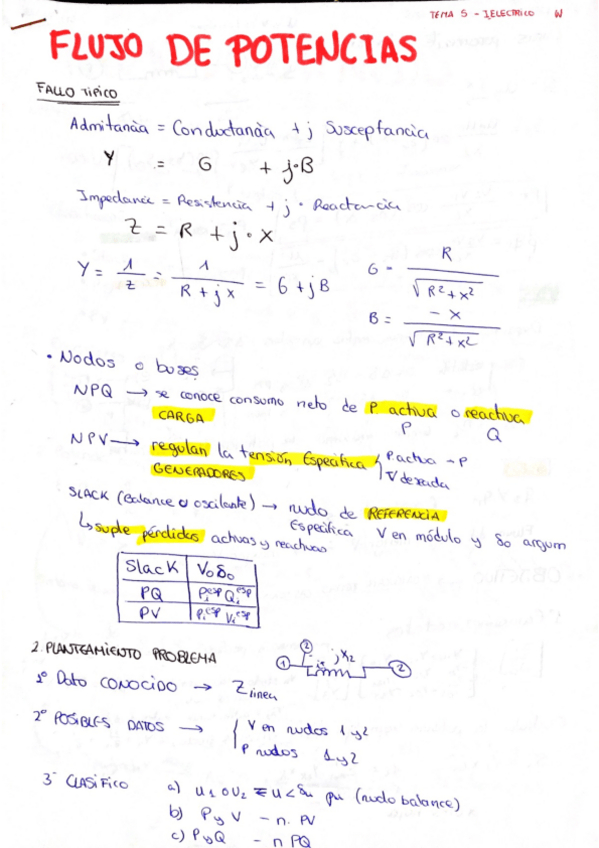 TEMA 5 - I.ELECTRICO W
FLUJO DE POTENCIAS
FALLO TIPICO
Admitancia = Conductancia + j Susceptancia
Y = G + j·B
Impedancia = Resistencia + j · Reactancia
Z = R + j · X
Y = 1/Z = 1/(R + jX) = G + jB
G = R/√(R²+X²)
B = -X/√(R²+X²)
• Nodos o buses
NPQ → se conoce consumo neto de P activa o reactiva
CARGA P Q
NPV → regulan la tensión Específica { P activa - P
GENERADORES V deseada
SLACK (Balance u oscilante) → nudo de REFERENCIA
Especifica V en módulo y δo argum
↳ suple pérdidas activas y reactivas
Slack | Vo δo
PQ | Pi^esp Qi^esp
PV | Pi^esp Vi^esp
2. PLANTEAMIENTO PROBLEMA
1 2 jX12 2
1º Dato CONOCIDO → Z linea
2º POSIBLES DATOS → { V en nudos 1 y 2
P nudos 1 y 2
3º CLASIFICO a) U1 o U2 = U<δu pu (nudo balance)
b) P y V - n. PV
c) P y Q - n PQ